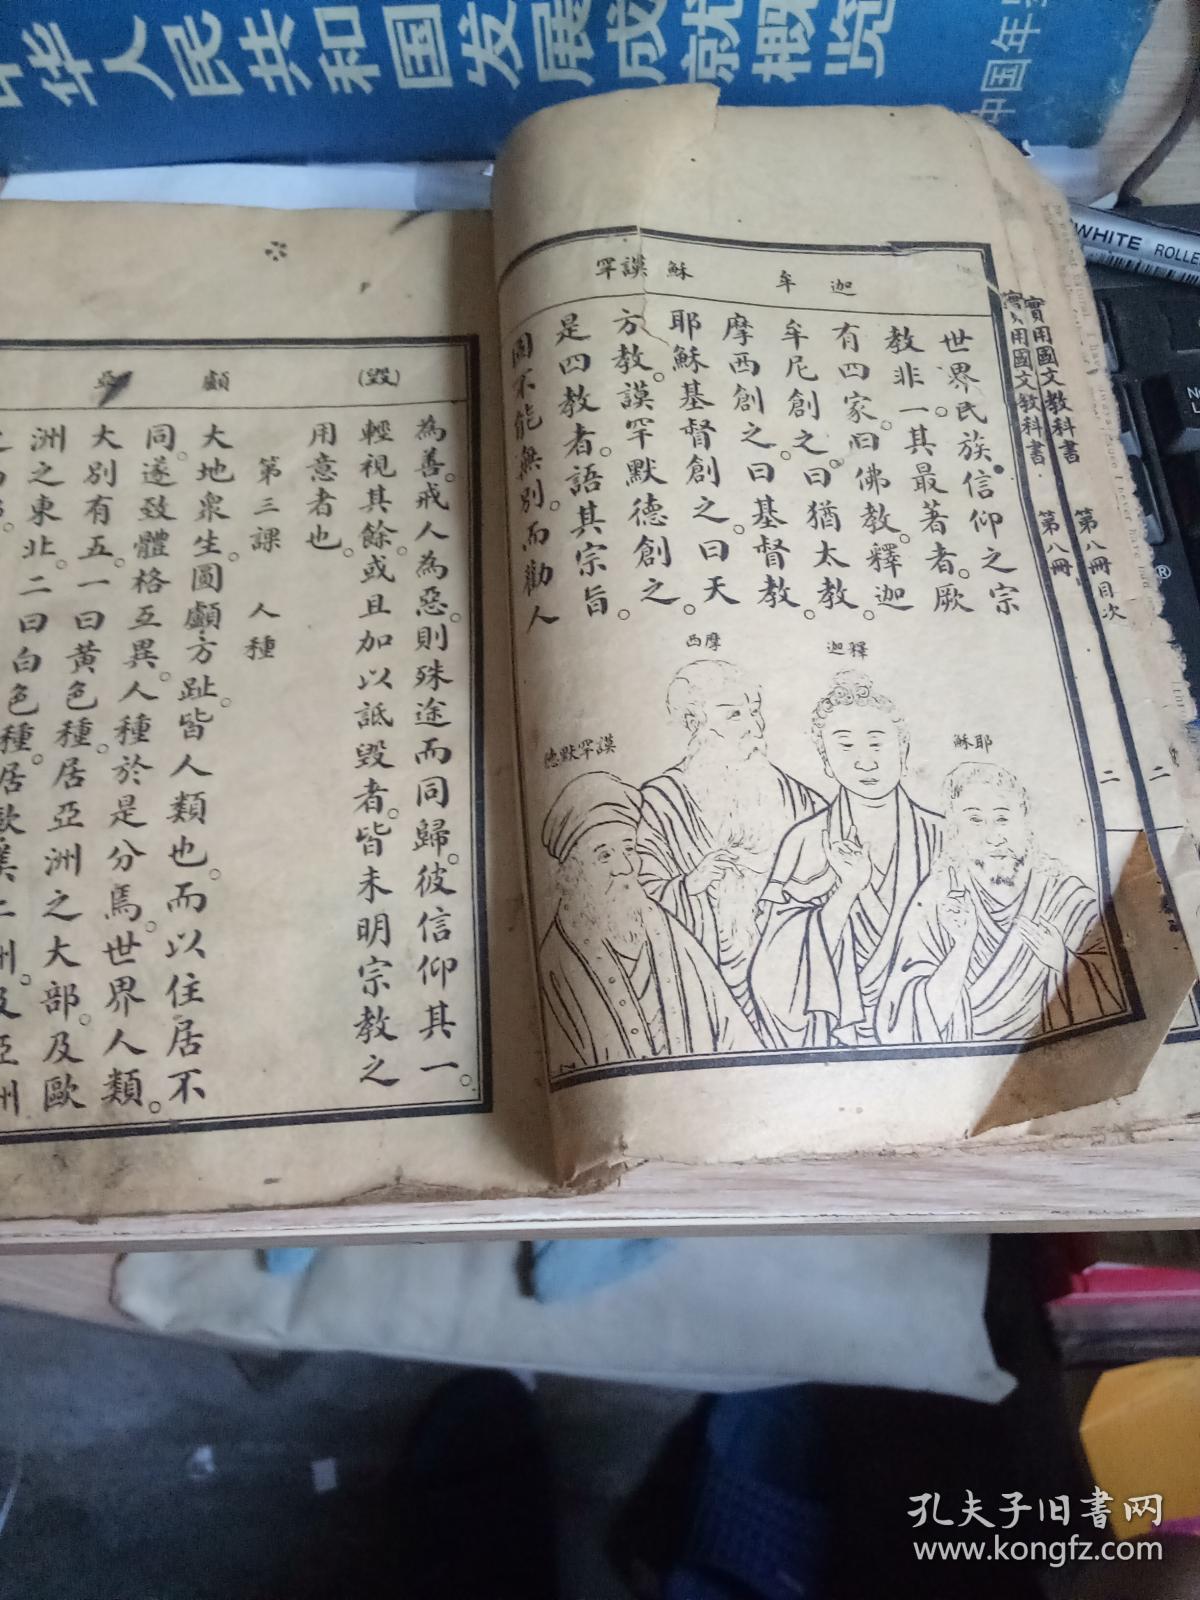 华人民共和国发展成就概览
中国年
實用國文教科書 第八冊目次 二
實用國文教科書 第八冊 二
迦
牟
穌
謨罕
世界民族信仰之宗
教非一其最著者厥
有四家曰佛教釋迦
牟尼創之曰猶太教
摩西創之曰基督教
耶穌基督創之曰天
方教謨罕默德創之
是四教者語其宗旨
固不能無別而勸人
耶穌
釋迦
摩西
謨罕默德
(毀)
顱
亞
為善戒人為惡則殊途而同歸彼信仰其一
輕視其餘或且加以詆毀者皆未明宗教之
用意者也
第三課 人種
大地眾生圓顱方趾皆人類也而以住居不
同遂致體格互異人種於是分焉世界人類
大別有五一曰黃色種居亞洲之大部及歐
洲之東北二曰白色種居歐美二洲及亞洲
WHITE ROLLE
孔夫子旧书网
www.kongfz.com